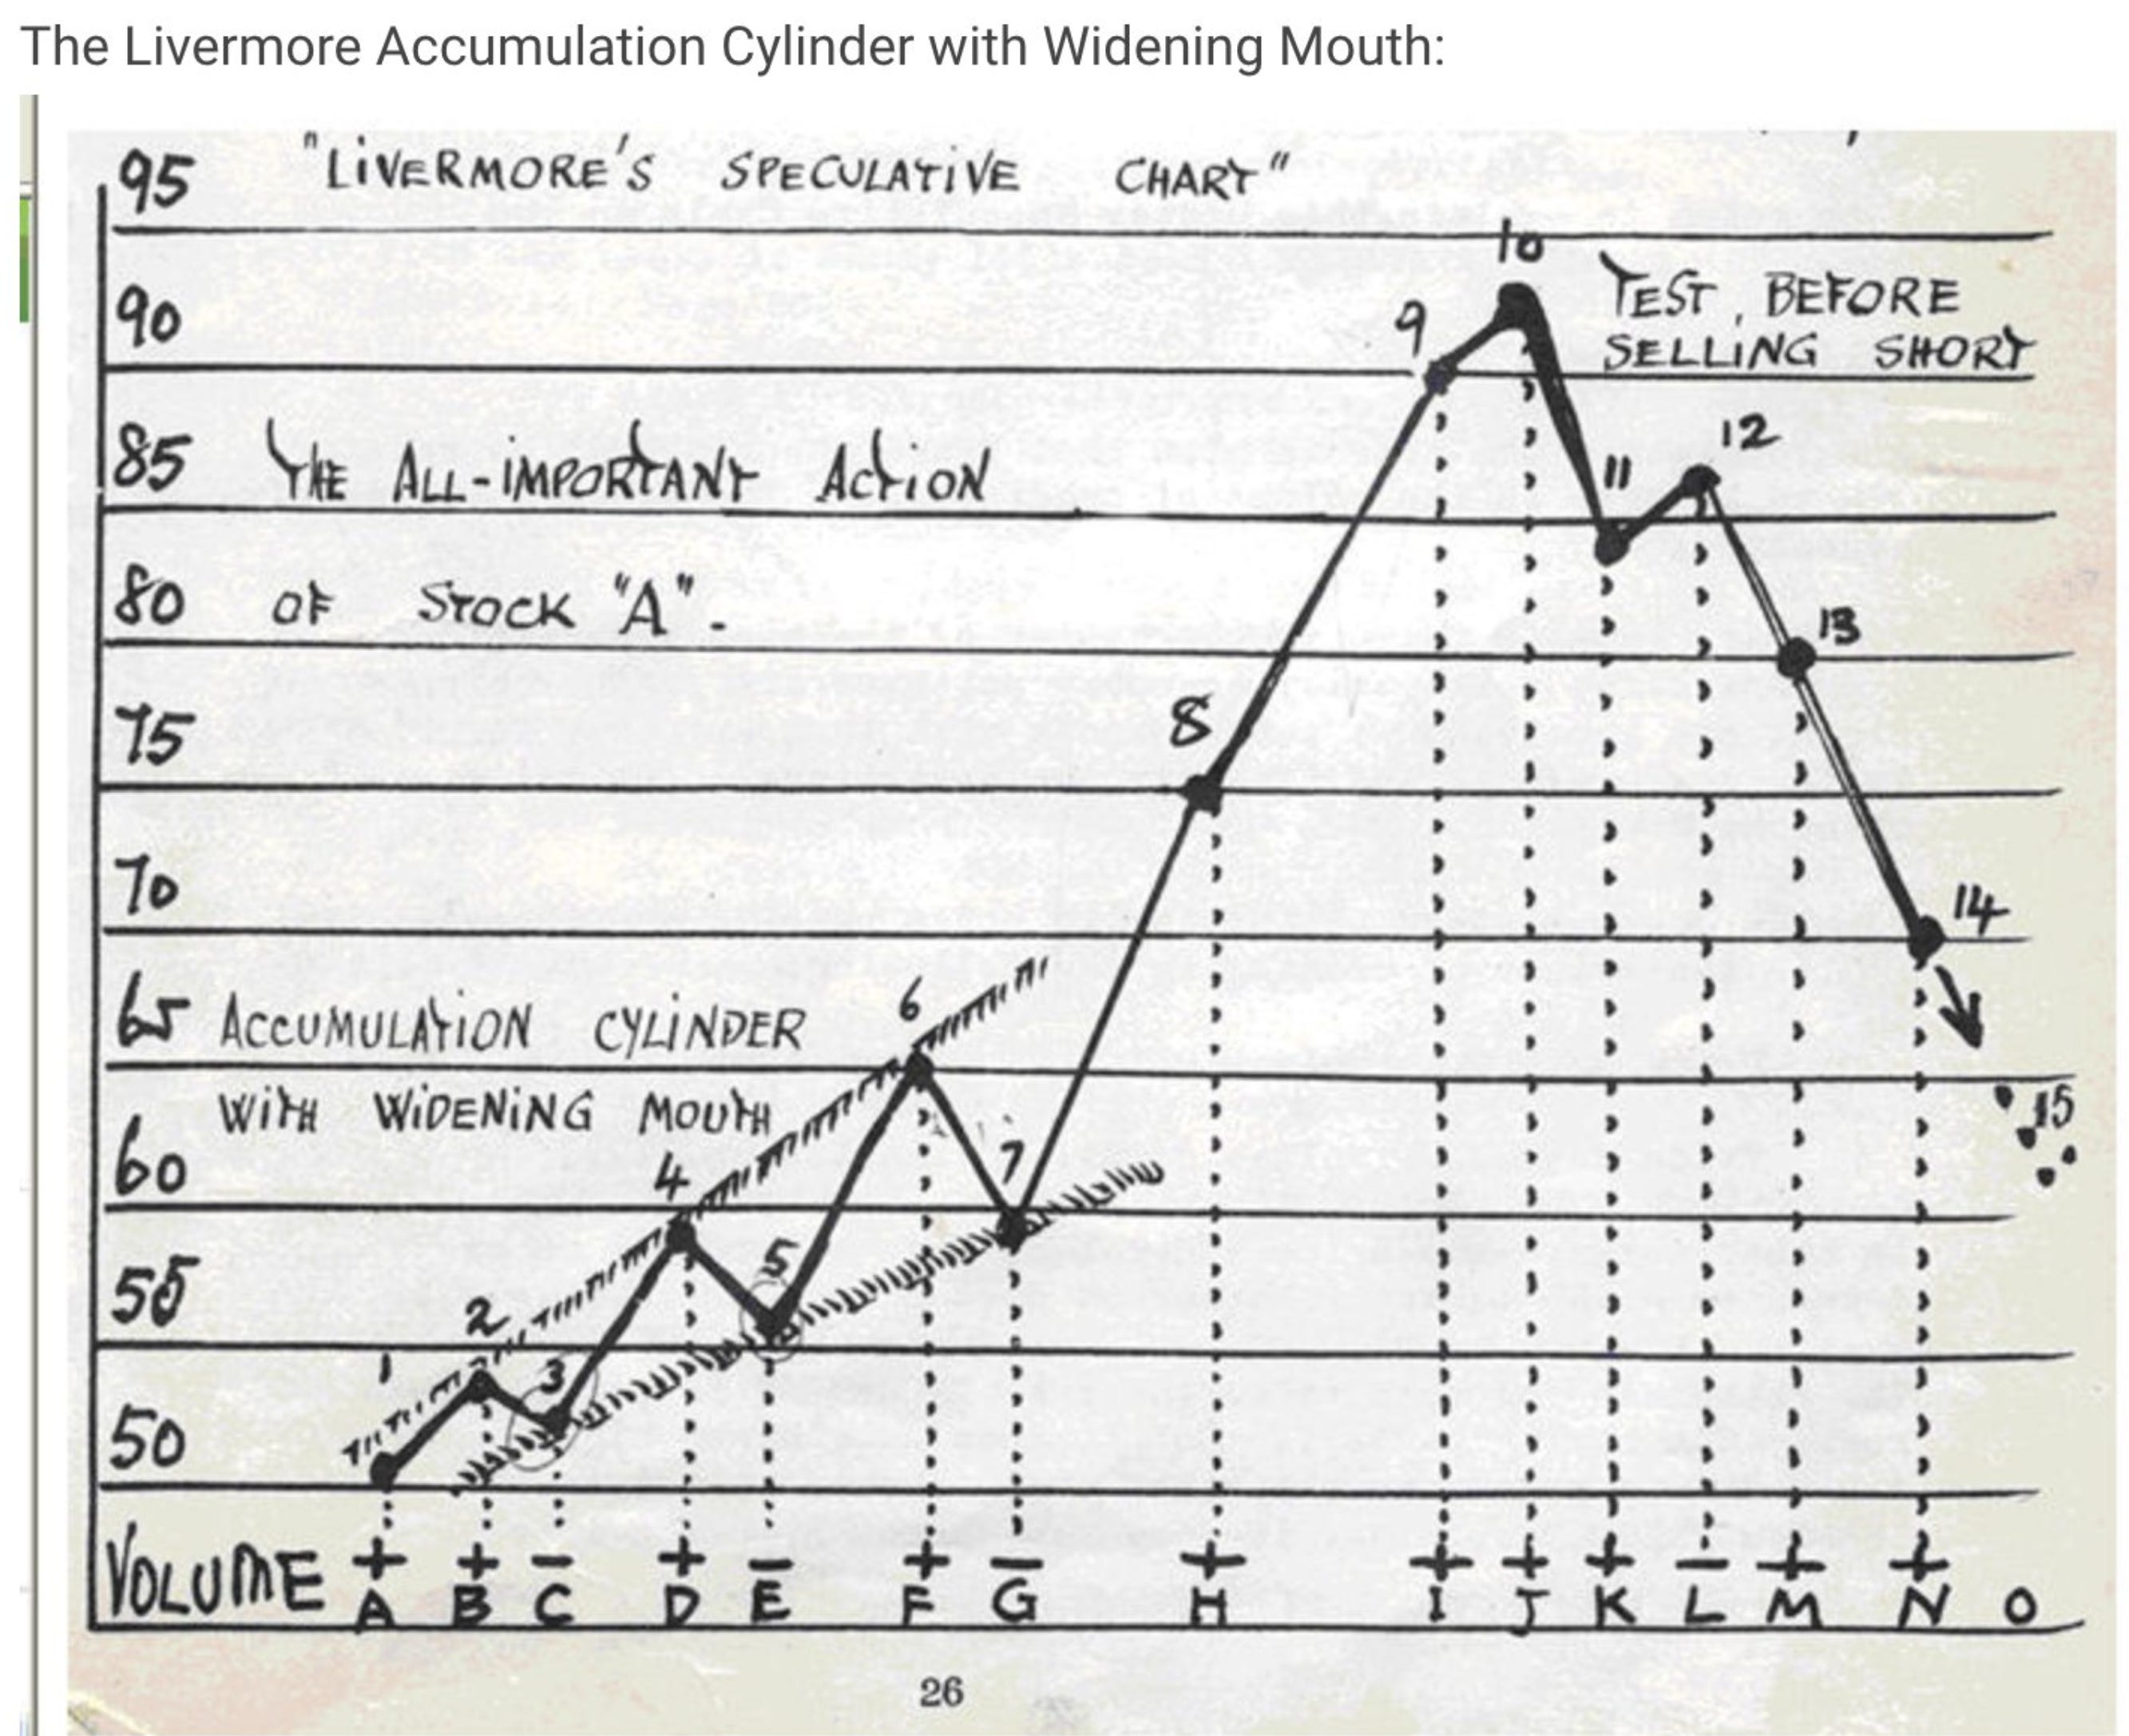 The Livermore Accumulation Cylinder with Widening Mouth:
95 "LIVERMORE'S SPECULATIVE CHART"
10
90 9 TEST, BEFORE
SELLING SHORT
12
85 THE ALL-IMPORTANT ACTION 11
80 OF STOCK "A". 13
75 8
70 14
65 ACCUMULATION CYLINDER 6
WITH WIDENING MOUTH 15
60 4 7
55 5
2
1 3
50
VOLUME + + - + - + - + + + + - + +
A B C D E F G H I J K L M N O
26